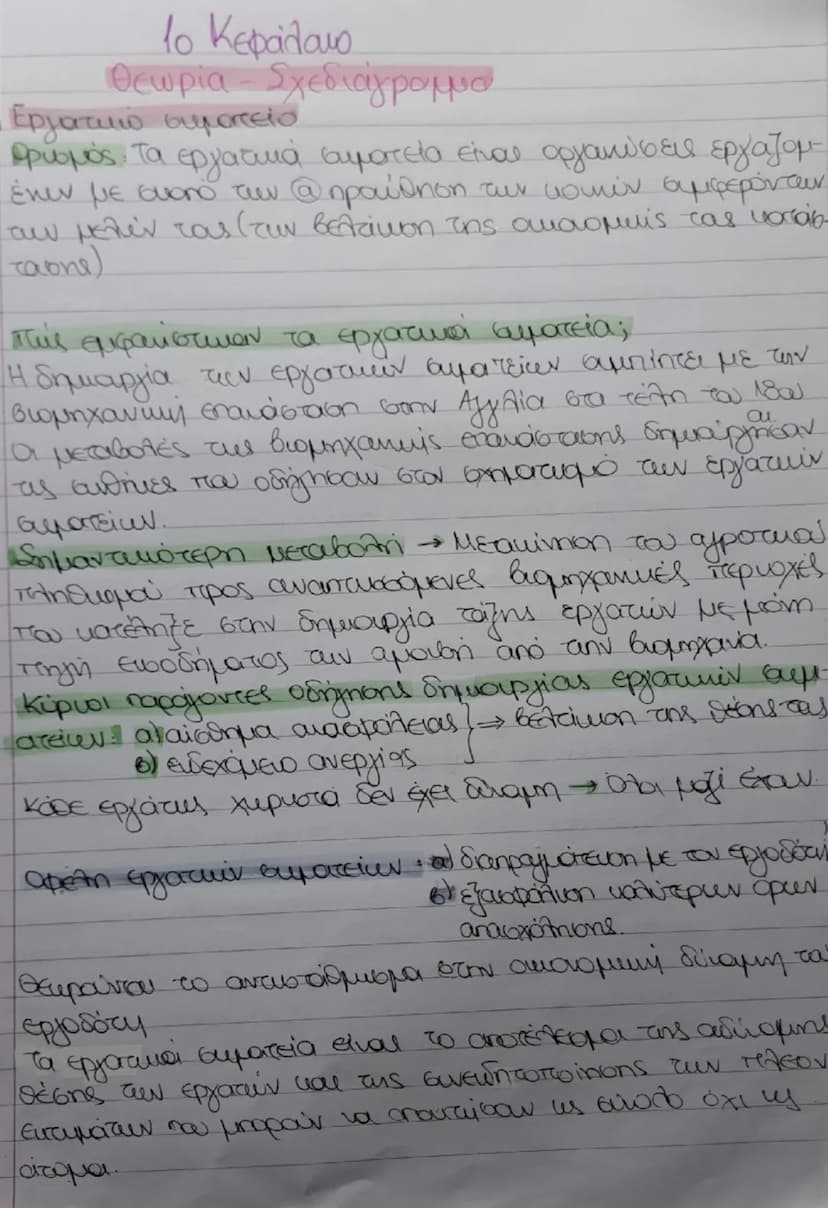 1ο Κεφάλαιο
Θεωρία - Σχεδιάγραμμα
Εργατικό σωματείο
Ορισμός: Τα εργατικά σωματεία είναι οργανώσεις εργαζομ-
ένων με σκοπό την προώθηση των κοινών συμφερόντων
των μελών τους (την βελτίωση της οικονομικής τους κατάσ-
τασης)
Πώς εμφανίστηκαν τα εργατικά σωματεία;
Η δημιουργία των εργατικών σωματείων συμπίπτει με την
βιομηχανική επανάσταση στην Αγγλία στα τέλη του 18ου
Οι μεταβολές της βιομηχανικής επανάστασης δημιούργησαν
τις συνθήκες που οδήγησαν στον σχηματισμό των εργατικών
σωματείων.
Σημαντικότερη μεταβολή → Μετακίνηση του αγροτικού
πληθυσμού προς αναπτυσσόμενες βιομηχανικές περιοχές
που κατέληξε στην δημιουργία τάξης εργατών με μόνη
πηγή εισοδήματος την αμοιβή από την βιομηχανία.
Κύριοι παράγοντες οδήγησης δημιουργίας εργατικών σωμ-
ατείων: α) αίσθημα ανασφάλειας } ⇒ βελτίωση της θέσης τους
β) ενδεχόμενο ανεργίας
Κάθε εργάτης χωριστά δεν έχει δύναμη → Όλοι μαζί έχουν.
Οφέλη εργατικών σωματείων: α) διαπραγμάτευση με τον εργοδότη
β) εξασφάλιση καλύτερων όρων
απασχόλησης.
Θεωρούνται το αντιστάθμισμα στην οικονομική δύναμη του
εργοδότη
Τα εργατικά σωματεία είναι το αποτέλεσμα της αδύναμης
θέσης των εργατών και της συνειδητοποίησης των πλεον
εκτημάτων που μπορούν να αποκτήσουν ως σύνολο όχι ως
άτομα.